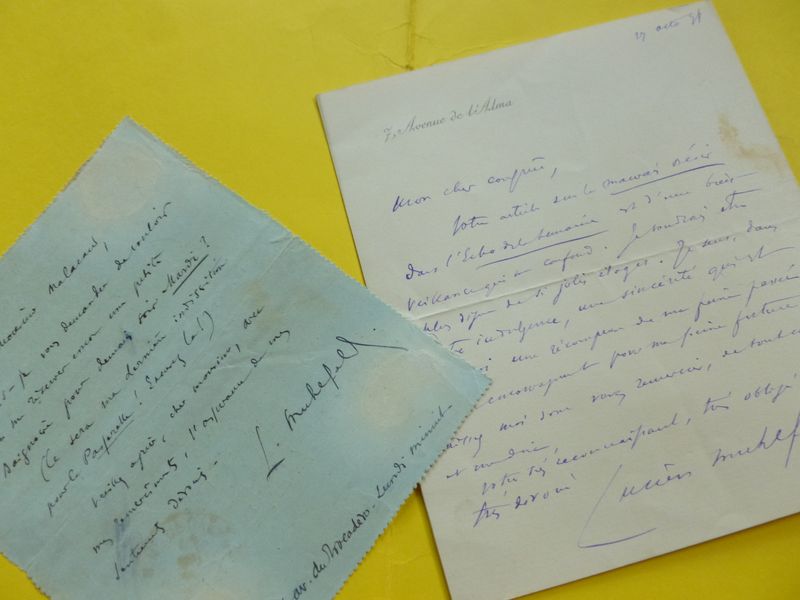 Monsieur Malacans,
je vous demander de vouloir
me réserver encore une petite
baignoire pour demain soir Mardi ?
(Ce sera ma dernière indiscrétion
pour la Passerelle !
Veuillez agréer, cher monsieur, avec
mes remerciements, l'expression de mes
sentiments
L. Muhlfeld.
av. du Trocadéro - Lundi minuit
7, Avenue de l'Alma
27 octo
Mon cher confrère,
Votre article sur le Mauvais Désir
dans l'Echo de la semaine est d'une bien-
veillance qui me confond. Je voudrais être
digne de si jolis éloges. Je sens, dans
indulgence, une sincérité qui est
une récompense de ma peine passée
encouragement pour ma peine future
moi sans vous remercier, de tout cœur
Votre très reconnaissant, très obligé
très dévoué
Lucien Muhlf